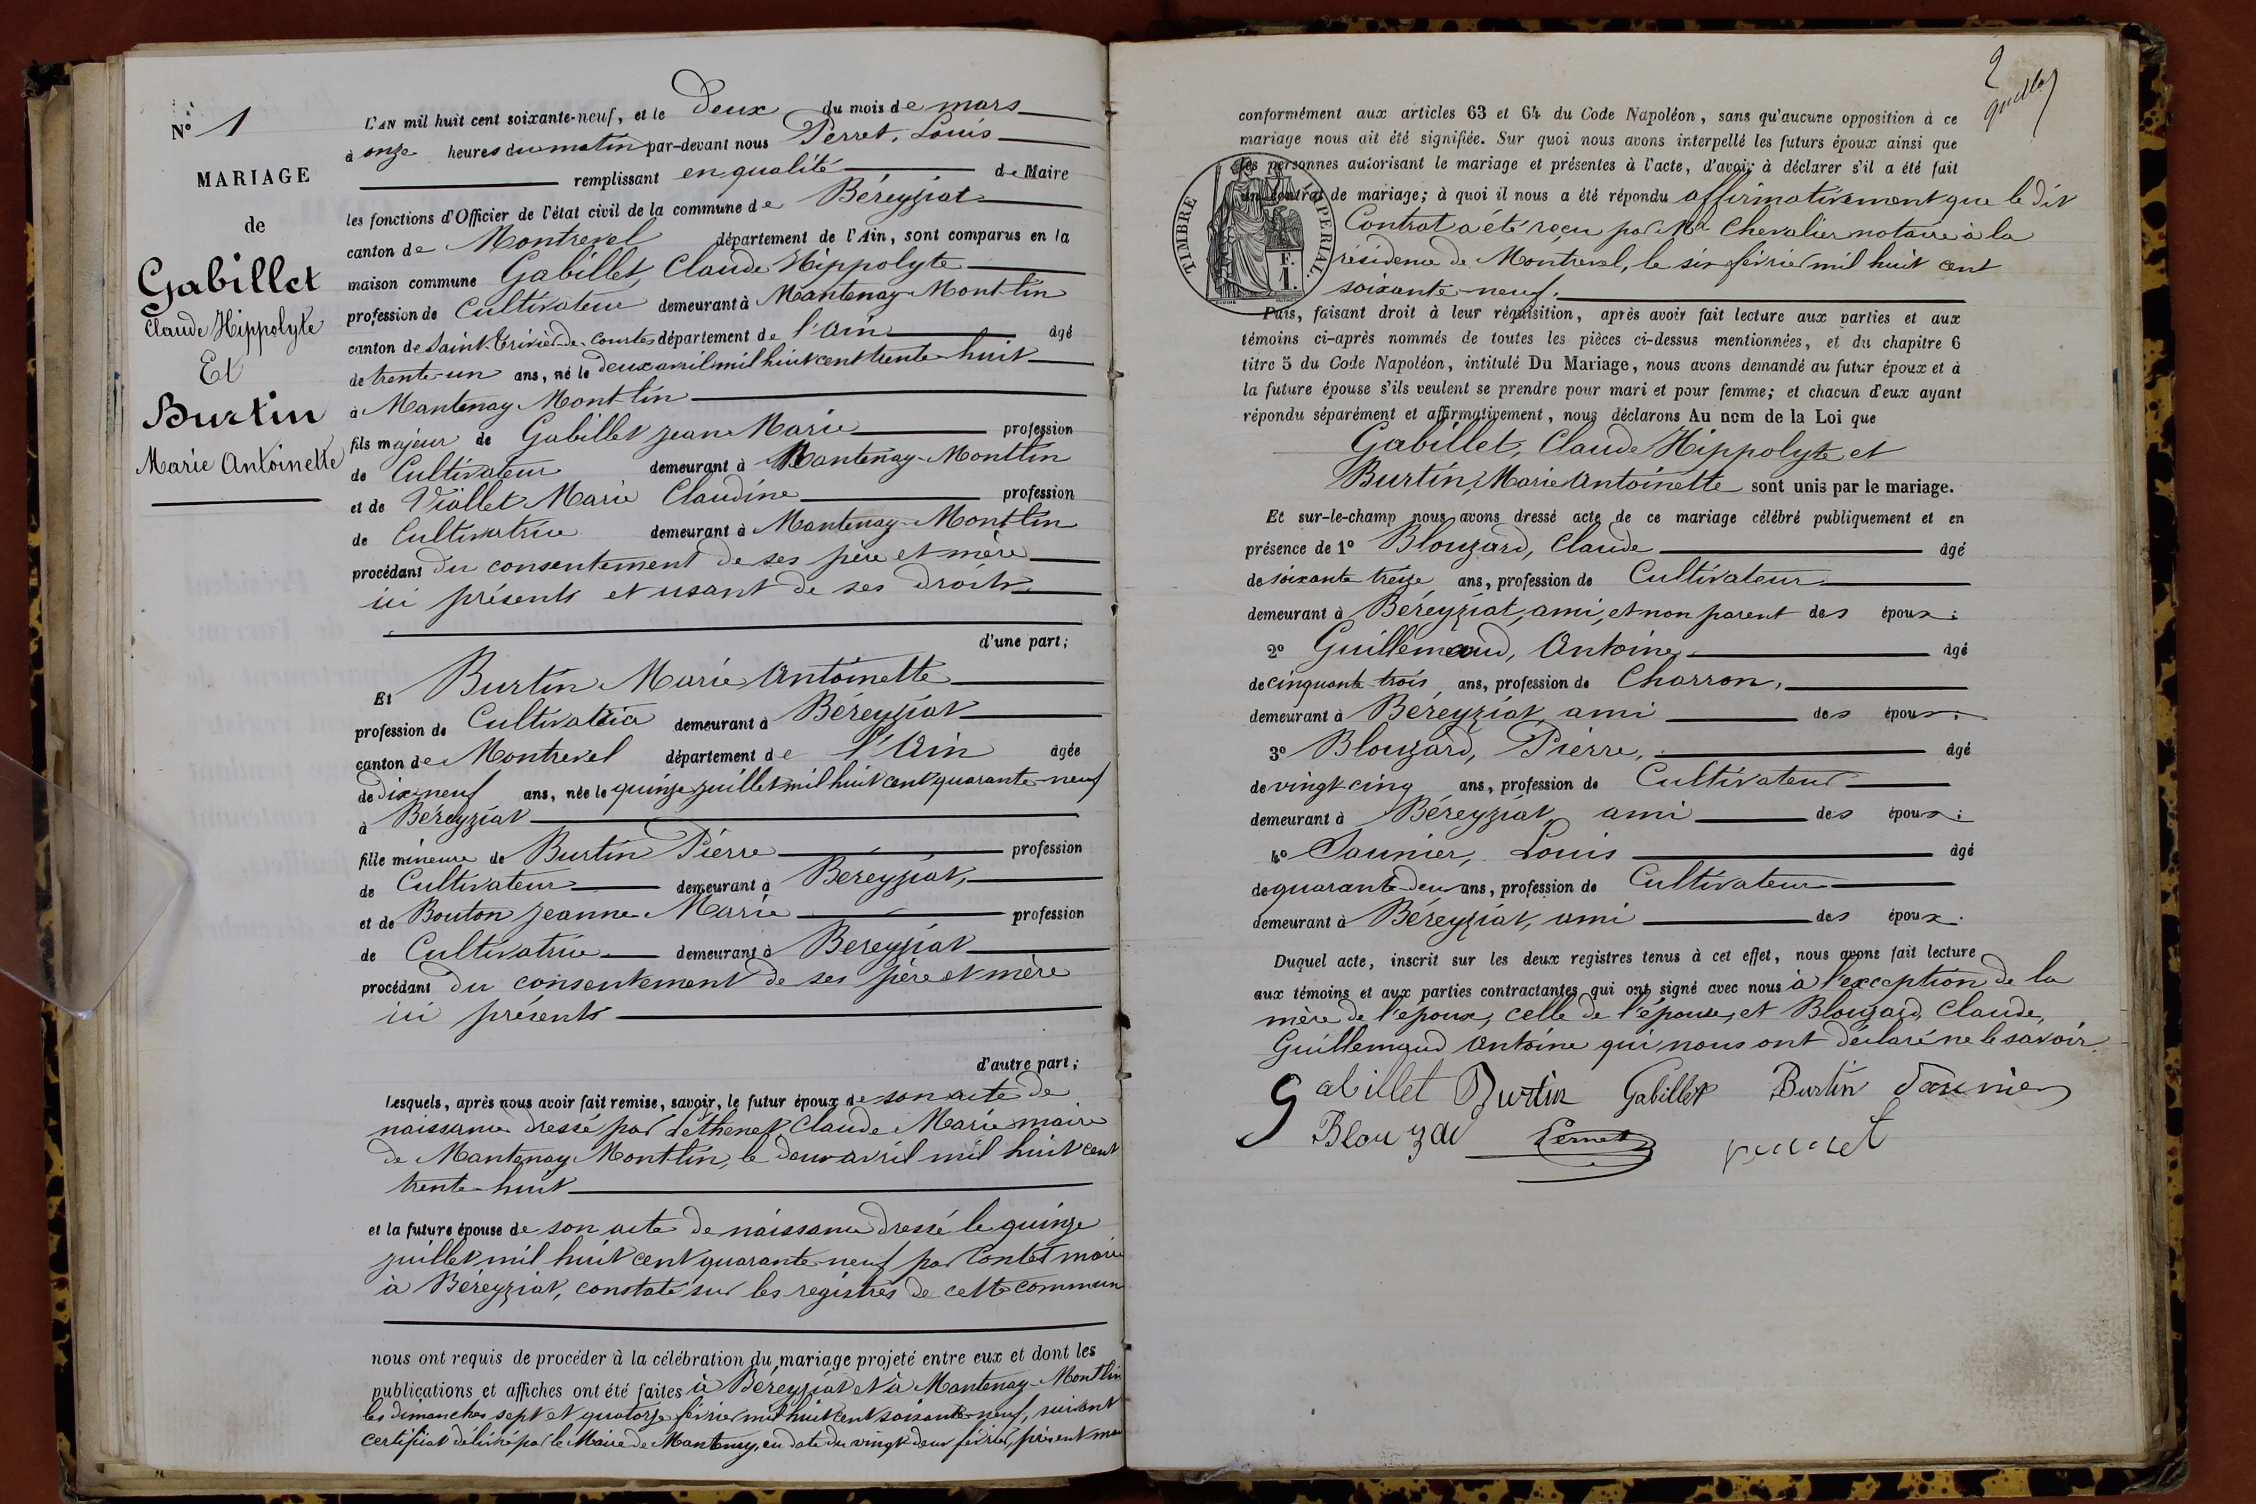 N° 1
MARIAGE
de
Gabillet
Claude Hippolyte
Et
Burtin
Marie Antoinette
L'AN mil huit cent soixante-neuf, et le deux du mois de mars
à onze heures du matin par-devant nous Perret, Louis
remplissant en qualité de Maire
les fonctions d'Officier de l'état civil de la commune de Béreyziat
canton de Montrevel département de l'Ain, sont comparus en la
maison commune Gabillet, Claude Hippolyte
profession de Cultivateur demeurant à Mantenay-Montlin
canton de Saint-Trivier-de-Courtes département de l'Ain âgé
de trente-un ans, né le deux avril mil huit cent trente-huit
à Mantenay-Montlin
fils majeur de Gabillet Jean Marie profession
de Cultivateur demeurant à Mantenay-Montlin
et de Viollet Marie Claudine profession
de Cultivatrice demeurant à Mantenay-Montlin
procédant du consentement de ses père et mère
ici présents et usant de ses droits
d'une part;
Et Burtin Marie Antoinette
profession de Cultivatrice demeurant à Béreyziat
canton de Montrevel département de l'Ain âgée
de dix-neuf ans, née le quinze juillet mil huit cent quarante-neuf
à Béreyziat
fille mineure de Burtin Pierre profession
de Cultivateur demeurant à Béreyziat,
et de Bouton Jeanne Marie profession
de Cultivatrice demeurant à Béreyziat
procédant du consentement de ses père et mère
ici présents
d'autre part;
Lesquels, après nous avoir fait remise, savoir, le futur époux de son acte de
naissance dressé par Léthenet Claude Marie maire
de Mantenay-Montlin, le deux avril mil huit cent
trente-huit
et la future épouse de son acte de naissance dressé le quinze
juillet mil huit cent quarante-neuf par Contet maire
à Béreyziat, constaté sur les registres de cette commun
nous ont requis de procéder à la célébration du mariage projeté entre eux et dont les
publications et affiches ont été faites à Béreyziat et à Mantenay-Montlin
les dimanches sept et quatorze février mil huit cent soixante-neuf, suivant
certificat délivré par le Maire de Mantenay, en date du vingt-deux février, présent
2
conformément aux articles 63 et 64 du Code Napoléon, sans qu'aucune opposition à ce
mariage nous ait été signifiée. Sur quoi nous avons interpellé les futurs époux ainsi que
les personnes autorisant le mariage et présentes à l'acte, d'avoir à déclarer s'il a été fait
un contrat de mariage; à quoi il nous a été répondu affirmativement que le dit
Contrat a été reçu par Me Chevalier notaire à la
résidence de Montrevel, le six février mil huit cent
soixante-neuf.
TIMBRE IMPERIAL
F.
1.
Puis, faisant droit à leur réquisition, après avoir fait lecture aux parties et aux
témoins ci-après nommés de toutes les pièces ci-dessus mentionnées, et du chapitre 6
titre 5 du Code Napoléon, intitulé Du Mariage, nous avons demandé au futur époux et à
la future épouse s'ils veulent se prendre pour mari et pour femme; et chacun d'eux ayant
répondu séparément et affirmativement, nous déclarons Au nom de la Loi que
Gabillet, Claude Hippolyte et
Burtin, Marie Antoinette sont unis par le mariage.
Et sur-le-champ nous avons dressé acte de ce mariage célébré publiquement et en
présence de 1° Blouzard, Claude âgé
de soixante treize ans, profession de Cultivateur
demeurant à Béreyziat, ami, et non parent des époux;
2° Guillemaud, Antoine âgé
de cinquante-trois ans, profession de Charron,
demeurant à Béreyziat, ami des époux;
3° Blouzard, Pierre, âgé
de vingt-cinq ans, profession de Cultivateur
demeurant à Béreyziat ami des époux;
4° Saunier, Louis âgé
de quarante-deux ans, profession de Cultivateur
demeurant à Béreyziat, ami des époux.
Duquel acte, inscrit sur les deux registres tenus à cet effet, nous avons fait lecture
aux témoins et aux parties contractantes qui ont signé avec nous à l'exception de la
mère de l'époux, celle de l'épouse, et Blouzard, Claude,
Guillemaud Antoine qui nous ont déclaré ne le savoir.
Gabillet Burtin Gabillet Burtin Saunier
Blouzard Perret